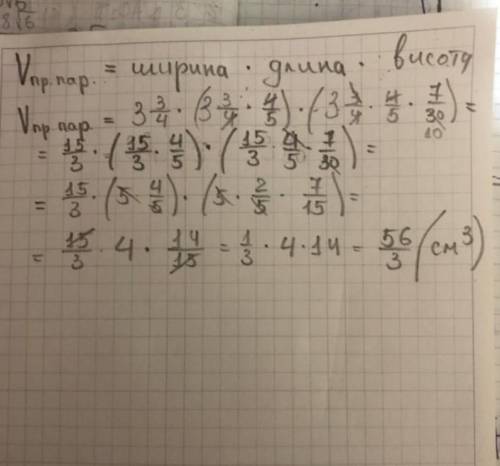 V пр. пар. = ширина · длина · висоту
V пр. пар = 3 3/4 · (3 3/4 · 4/5) · (3 3/4 · 4/5 · 7/30) =
10
= 15/3 · (15/3 · 4/5) · (15/3 · 4/5 · 7/30) =
= 15/3 · (5 · 4/5) · (5 · 2/5 · 7/15) =
= 15/3 · 4 · 14/15 = 1/3 · 4 · 14 = 56/3 (см³)